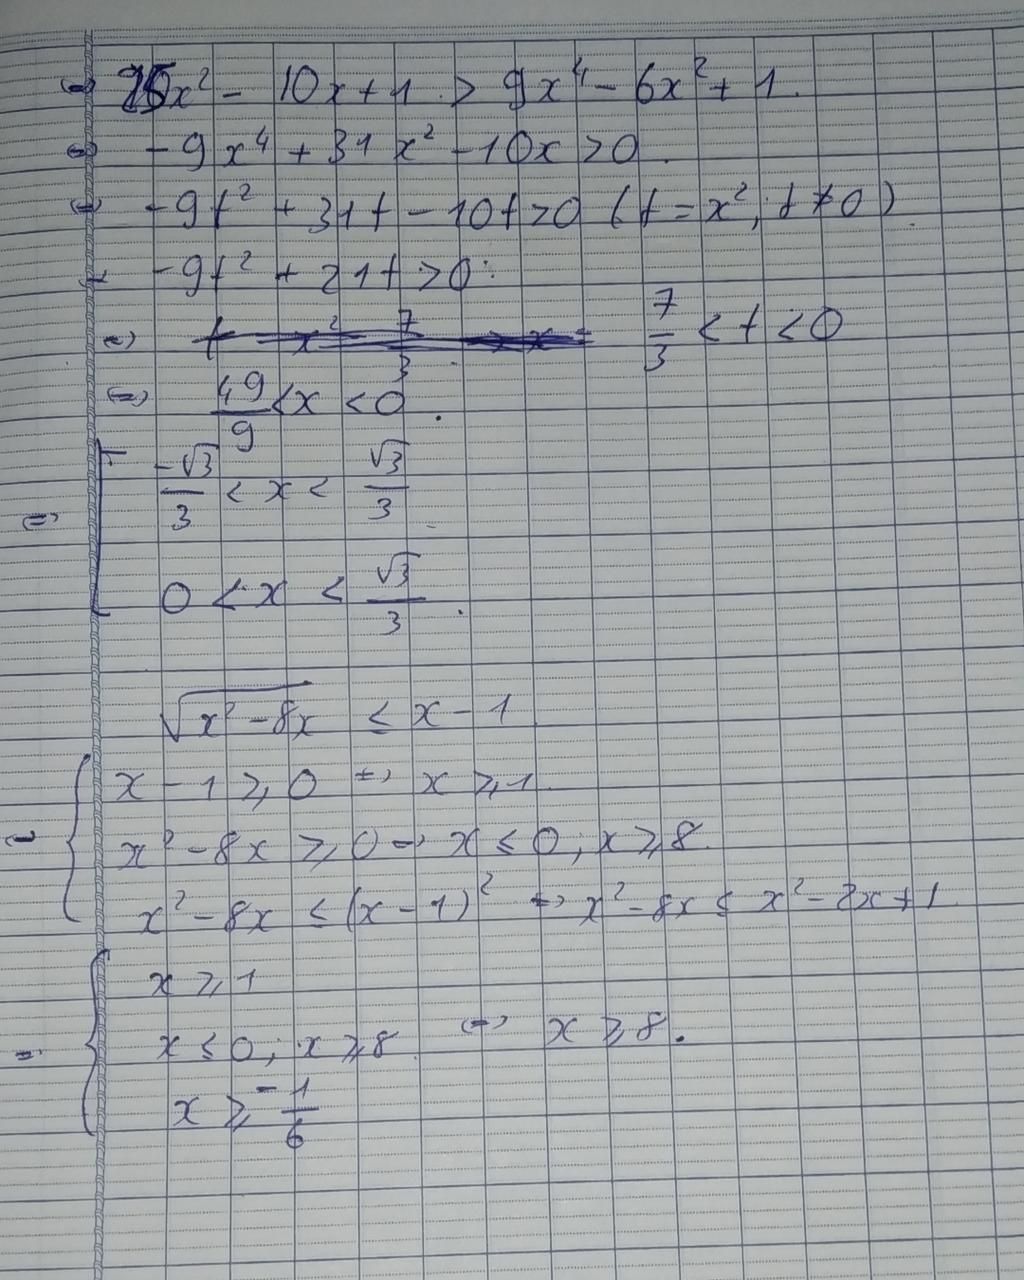 ⇔ 25x² - 10x + 1 > 9x⁴ - 6x² + 1.
⇔ -9x⁴ + 31x² - 10x > 0.
⇔ -9t² + 31t - 10t > 0 (t = x², t ≠ 0)
⇔ -9t² + 21t > 0.
⇔ 7/3 < t < 0
⇔ 49/9 < x < 0.
⇔ [ -√3/3 < x < √3/3
0 < x < √3/3.
√(x² - 8x) ≤ x - 1
⇔ { x - 1 ≥ 0 ⇔ x ≥ 1
x² - 8x ≥ 0 ⇔ x ≤ 0; x ≥ 8
x² - 8x ≤ (x - 1)² ⇔ x² - 8x ≤ x² - 2x + 1
⇔ { x ≥ 1
x ≤ 0; x ≥ 8 ⇔ x ≥ 8.
x ≥ -1/6